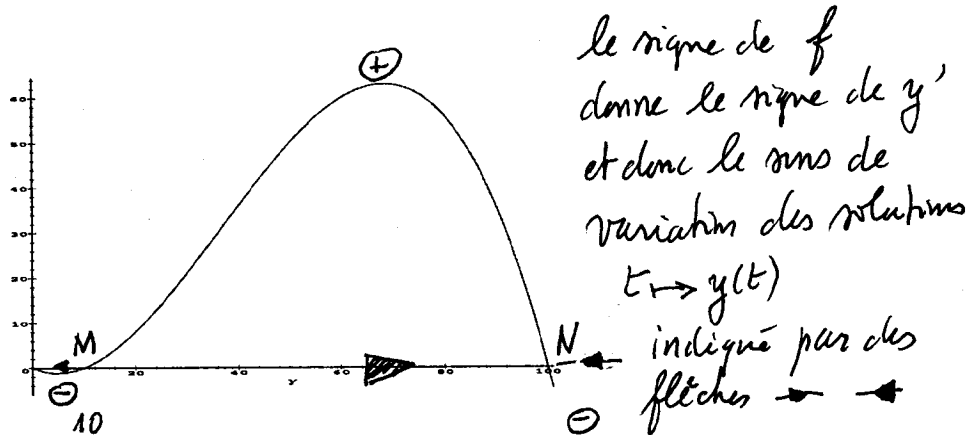 le signe de f
donne le signe de y'
et donc le sens de
variation des solutions
t ↦ y(t)
indiqué par des
flèches
+
60
50
40
30
20
10
0
M
N
20
40
Y
80
100
−
10
−